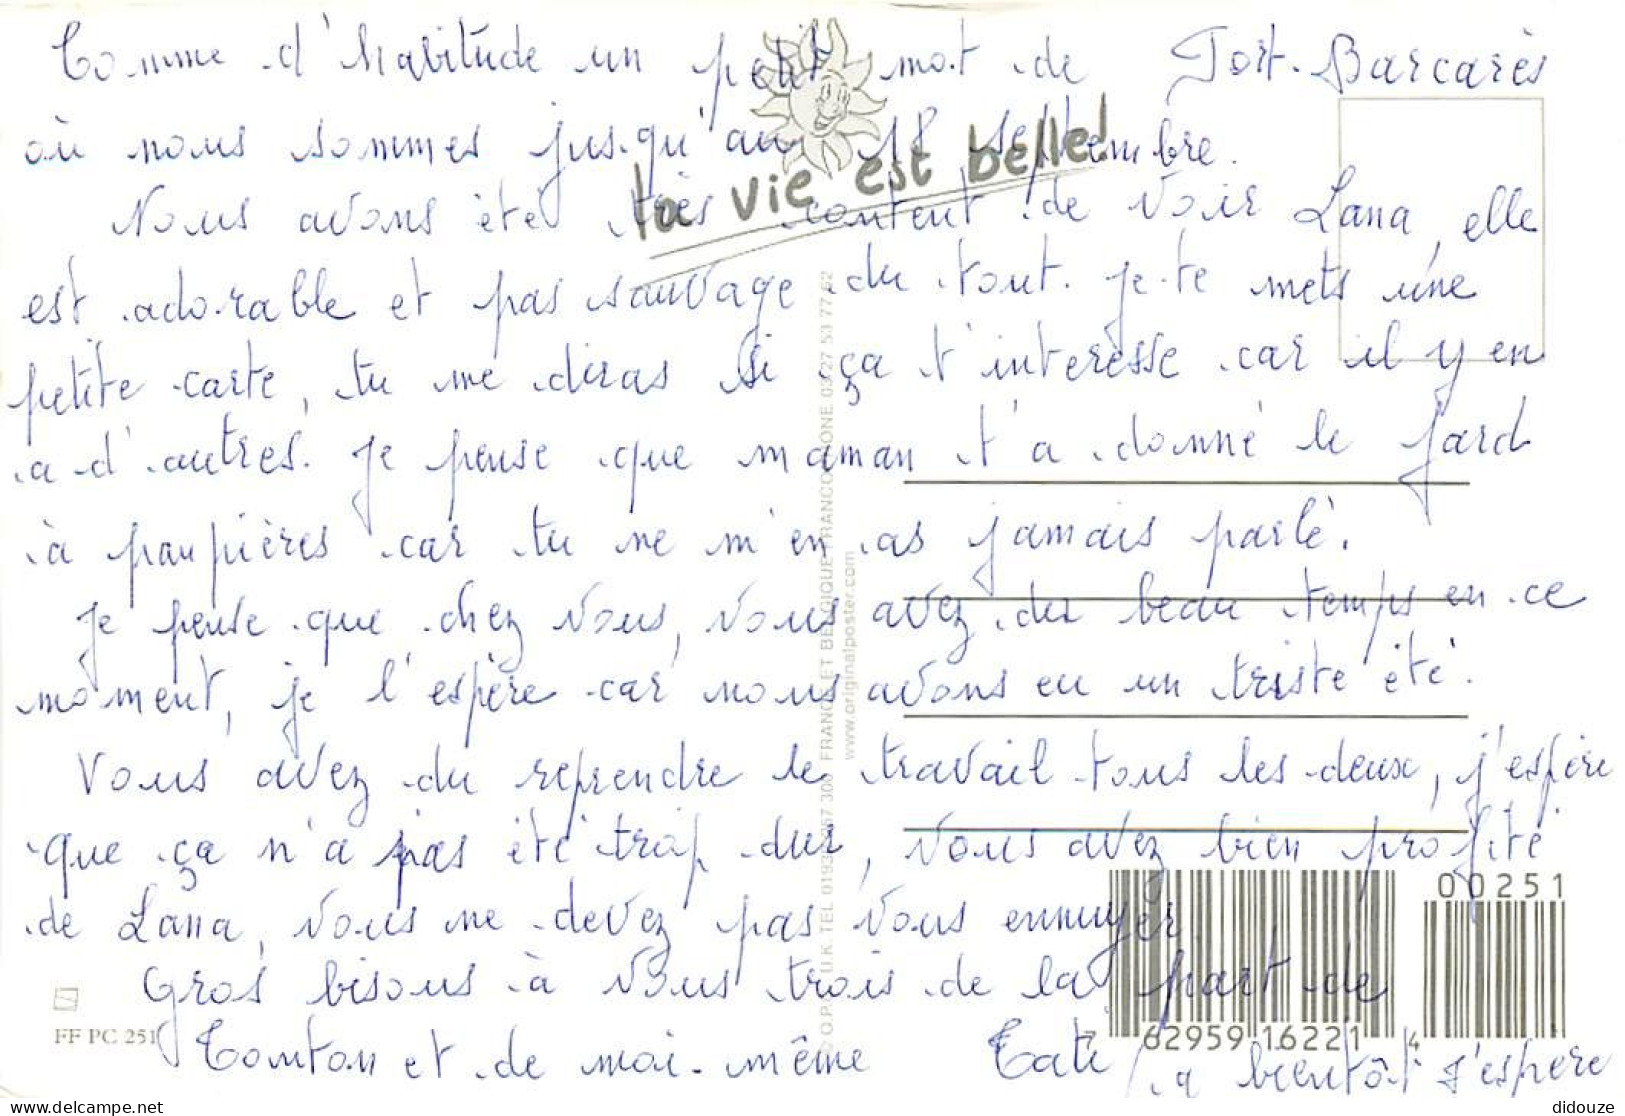 Comme d'habitude un petit mot de Port-Barcarès
où nous sommes jusqu'au 18 septembre.
la vie est belle!
Nous avons été très content de voir Lana, elle
est adorable et pas sauvage du tout. Je te mets une
petite carte, tu me diras si ça t'intéresse car il y en
a d'autres. Je pense que maman t'a donné le fard
à paupières car tu ne m'en as jamais parlé.
Je pense que chez vous, vous avez du beau temps en ce
moment, je l'espère car nous avons eu un triste été.
Vous avez du reprendre le travail tous les deux, j'espère
que ça n'a pas été trop dur, vous avez bien profité
de Lana, vous ne devez pas vous ennuyer
Gros bisous à vous trois de la part de
Tonton et de moi-même Tati
à bientôt j'espère
FF PC 251
O.P. U.K. TEL 01933 267 300 FRANCE ET BELGIQUE FRANCODONE 03 27 53 77 62
www.originalposter.com
00251
7 62959 16221 4
didouze